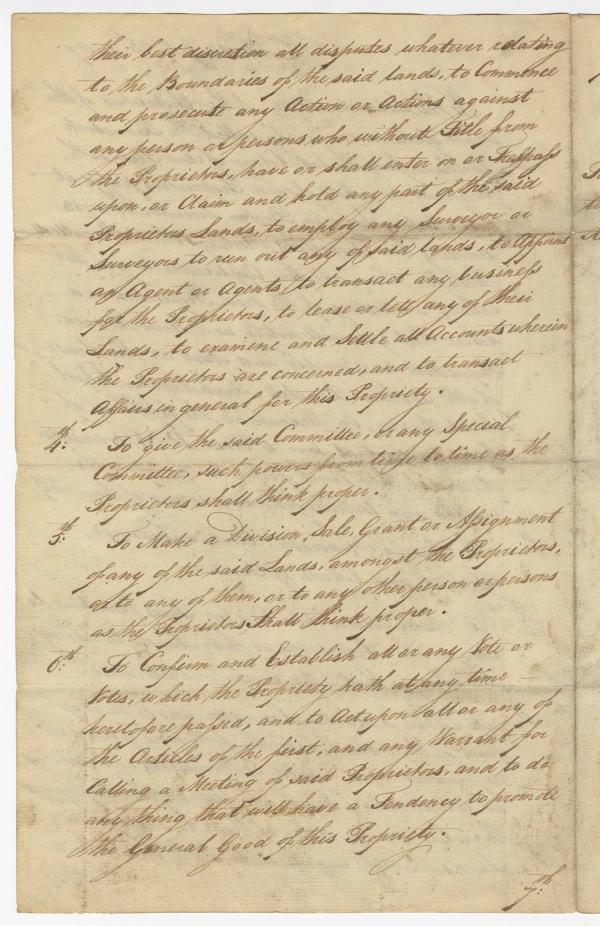 their best discretion all disputes whatever relating
to the Boundaries of the said lands, to Commence
and prosecute any Action or Actions against
any person or persons who without Title from
the Proprietors, have or shall enter on or Trespass
upon, or Claim and hold any part of the said
Proprietors Lands, to employ any Surveyor or
Surveyors to run out any of said lands, to Appoint
an Agent or Agents to transact any business
for the Proprietors, to lease or lett any of their
Lands, to examine and Settle all Accounts wherein
the Proprietors are concerned, and to transact
Affairs in general for this Propriety.
4.th To give the said Committee, or any Special
Committee, such powers from time to time as the
Proprietors shall think proper.
5.th To Make a Division, Sale, Grant or Assignment
of any of the said Lands, amongst the Proprietors,
or to any of them, or to any other person or persons
as the Proprietors Shall think proper.
6.th To Confirm and Establish all or any Vote or
Votes, which the Propriety hath at any time
heretofore passed, and to Act upon all or any of
the Articles of the first, and any Warrant for
Calling a Meeting of said Proprietors, and to do
any thing that will have a Tendency to promote
the General Good of this Propriety.
7.th